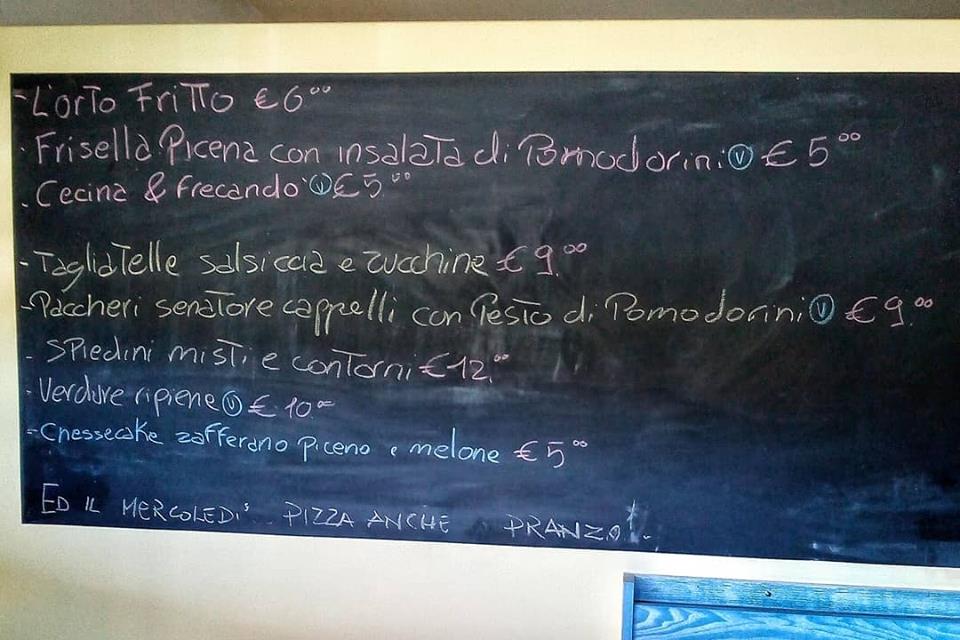 - L'orto Fritto € 6⁰⁰
. Frisella Picena con insalata di Pomodorini Ⓥ € 5⁰⁰
. Cecina & frecandò Ⓥ € 5⁰⁰
- Tagliatelle salsiccia e zucchine € 9.⁰⁰
- Paccheri senatore cappelli con Pesto di Pomodorini Ⓥ € 9.⁰⁰
- Spiedini misti e contorni € 12.⁰⁰
- Verdure ripiene Ⓥ € 10⁰⁰
- Chessecake zafferano Piceno e melone € 5⁰⁰
ED IL MERCOLEDI'... PIZZA ANCHE A PRANZO!.